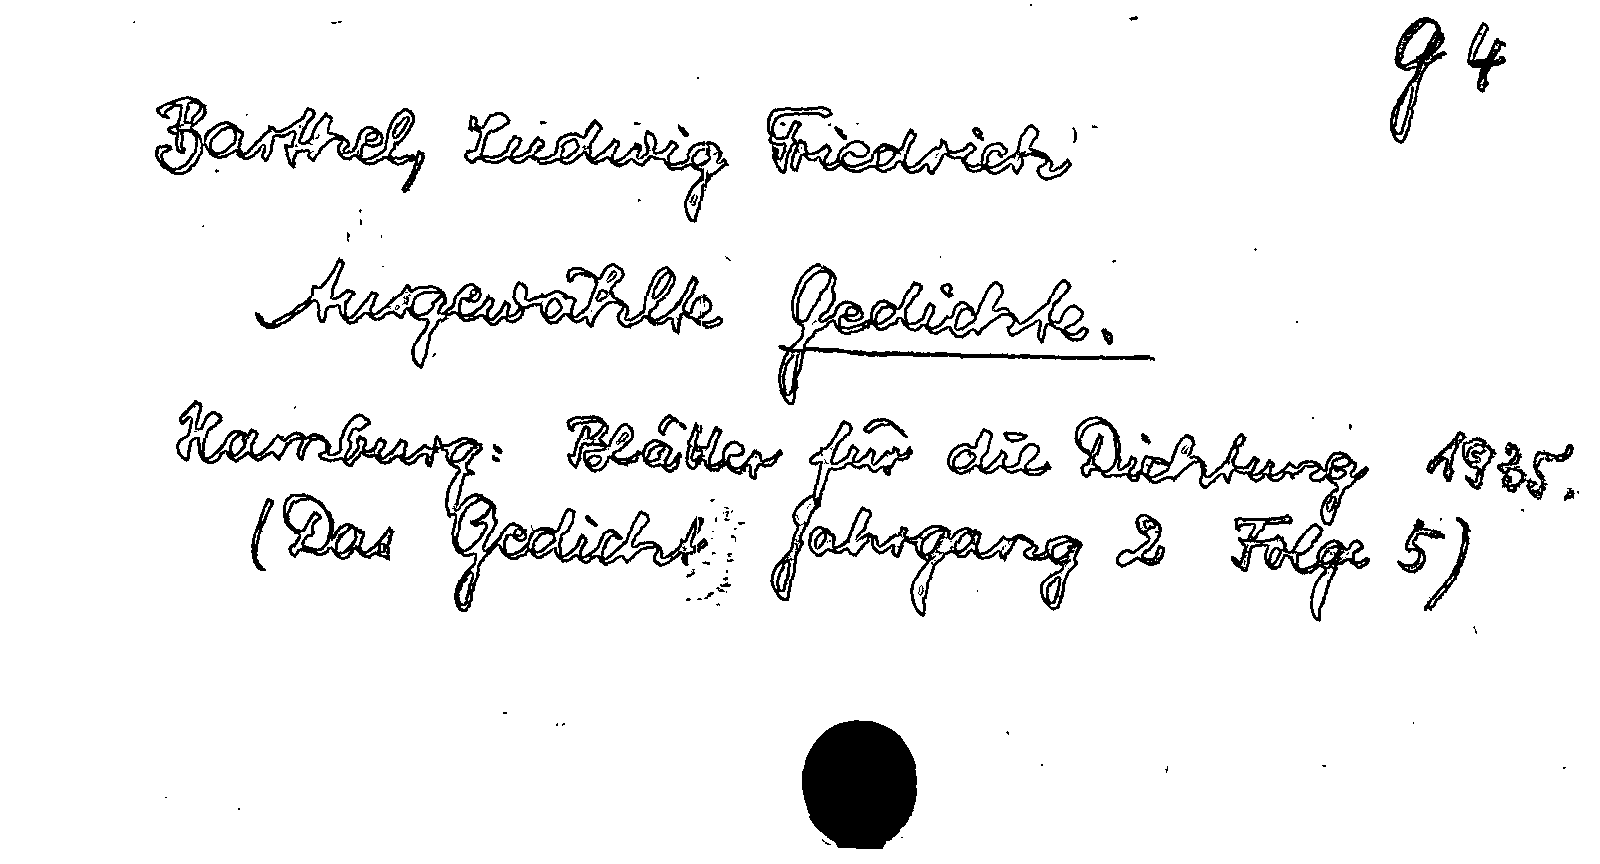 g 4
Barthel, Ludwig Friedrich
Ausgewählte Gedichte.
Hamburg: Blätter für die Dichtung 1935.
(Das Gedicht Jahrgang 2 Folge 5)